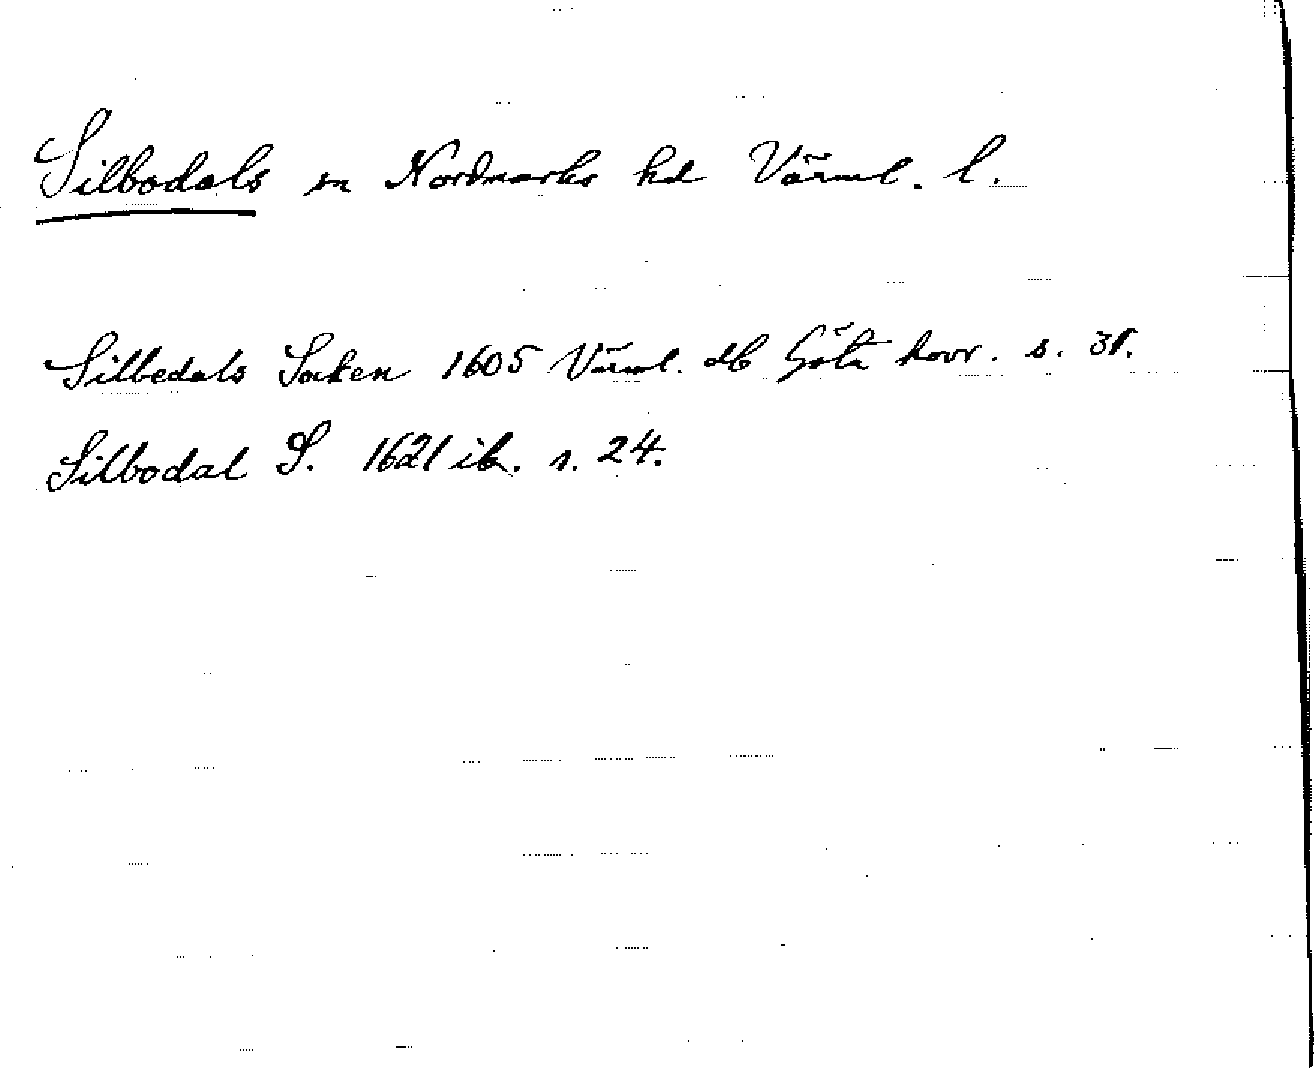 Silbodals sn Nordmarks hd Värml. l.
Silbedals Socken 1605 Värml. db Göta hovr. s. 31.
Silbodal S. 1621 ib. s. 24.